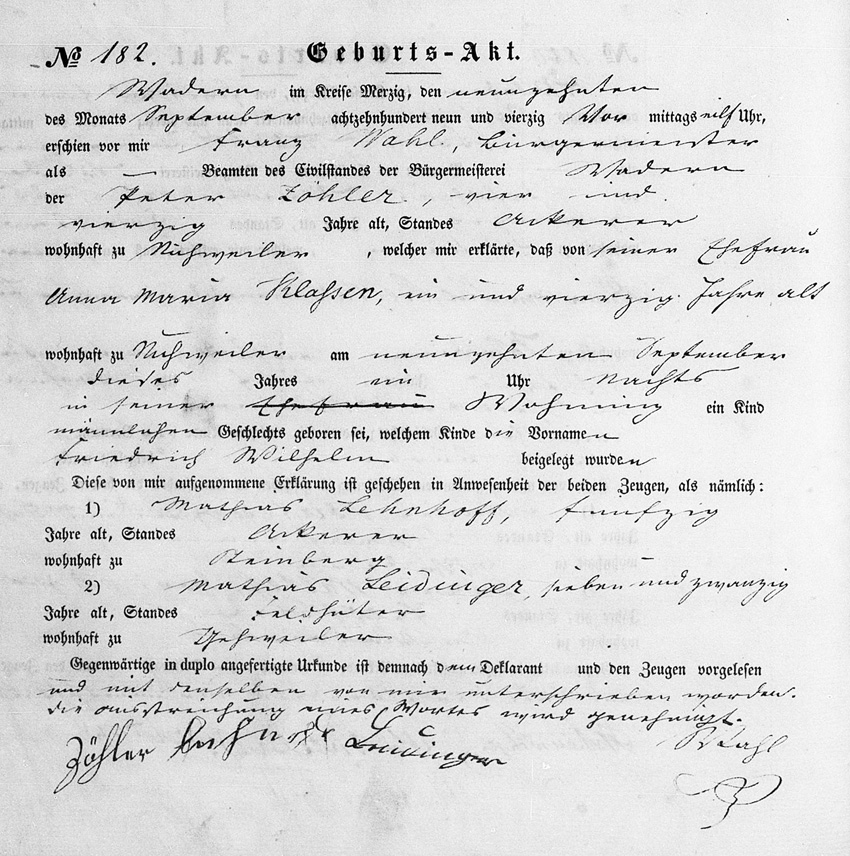 № 182. Geburts-Akt.
Wadern im Kreise Merzig, den neunzehnten
des Monats September achtzehnhundert neun und vierzig Vor mittags eilf Uhr,
erschien vor mir Franz Wahl, Bürgermeister
als — Beamten des Civilstandes der Bürgermeisterei Wadern
der Peter Zöhler, vier und
vierzig Jahre alt, Standes Ackerer
wohnhaft zu Nuhweiler, welcher mir erklärte, daß von seiner Ehefrau
Anna Maria Klassen, ein und vierzig Jahre alt
wohnhaft zu Nuhweiler am neunzehnten September
dieses Jahres ein Uhr Nachts
in seiner Ehefrau Wohnung ein Kind
männlichen Geschlechts geboren sei, welchem Kinde die Vornamen
Friedrich Wilhelm beigelegt wurden
Diese von mir aufgenommene Erklärung ist geschehen in Anwesenheit der beiden Zeugen, als nämlich:
1) Mathias Lehnhoff, funfzig
Jahre alt, Standes Ackerer
wohnhaft zu Steinberg
2) Mathias Leidinger, sieben und zwanzig
Jahre alt, Standes Feldhüter
wohnhaft zu Gehweiler
Gegenwärtige in duplo angefertigte Urkunde ist demnach dem Deklarant und den Zeugen vorgelesen
und mit denselben von mir unterschrieben worden.
Die Ausstreichung eines Wortes wird genehmigt.
Zöhler Leidinger Wahl